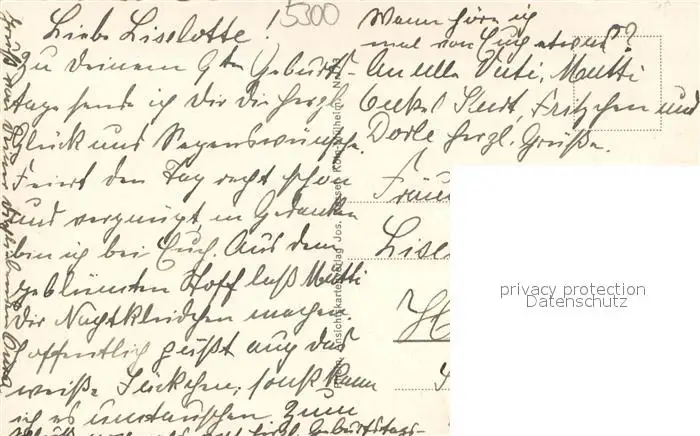 5300
Liebe Liselotte!
Zu Deinem 9ten Geburts-
tage sende ich Dir die herzl.
Glück und Segenswünsche.
Feiert den Tag recht schön
und vergnügt, in Gedanken
bin ich bei Euch. Aus dem
geblümten Stoff laß Mutti
Dir Nachtkleidchen machen.
Hoffentlich paßt auch das
weiße Jäckchen, sonst kann
ich es umtauschen. Zum
Geburtstags-
Wann höre ich
mal von Euch etwas??
An alle Vati, Mutti
Onkel Kurt, Fritzchen und
Dorle herzl. Grüße.
Fräu
Lisel
H
Ansichtskartenverlag Jos. Köln-Mülheim Nr.
privacy protection
Datenschutz